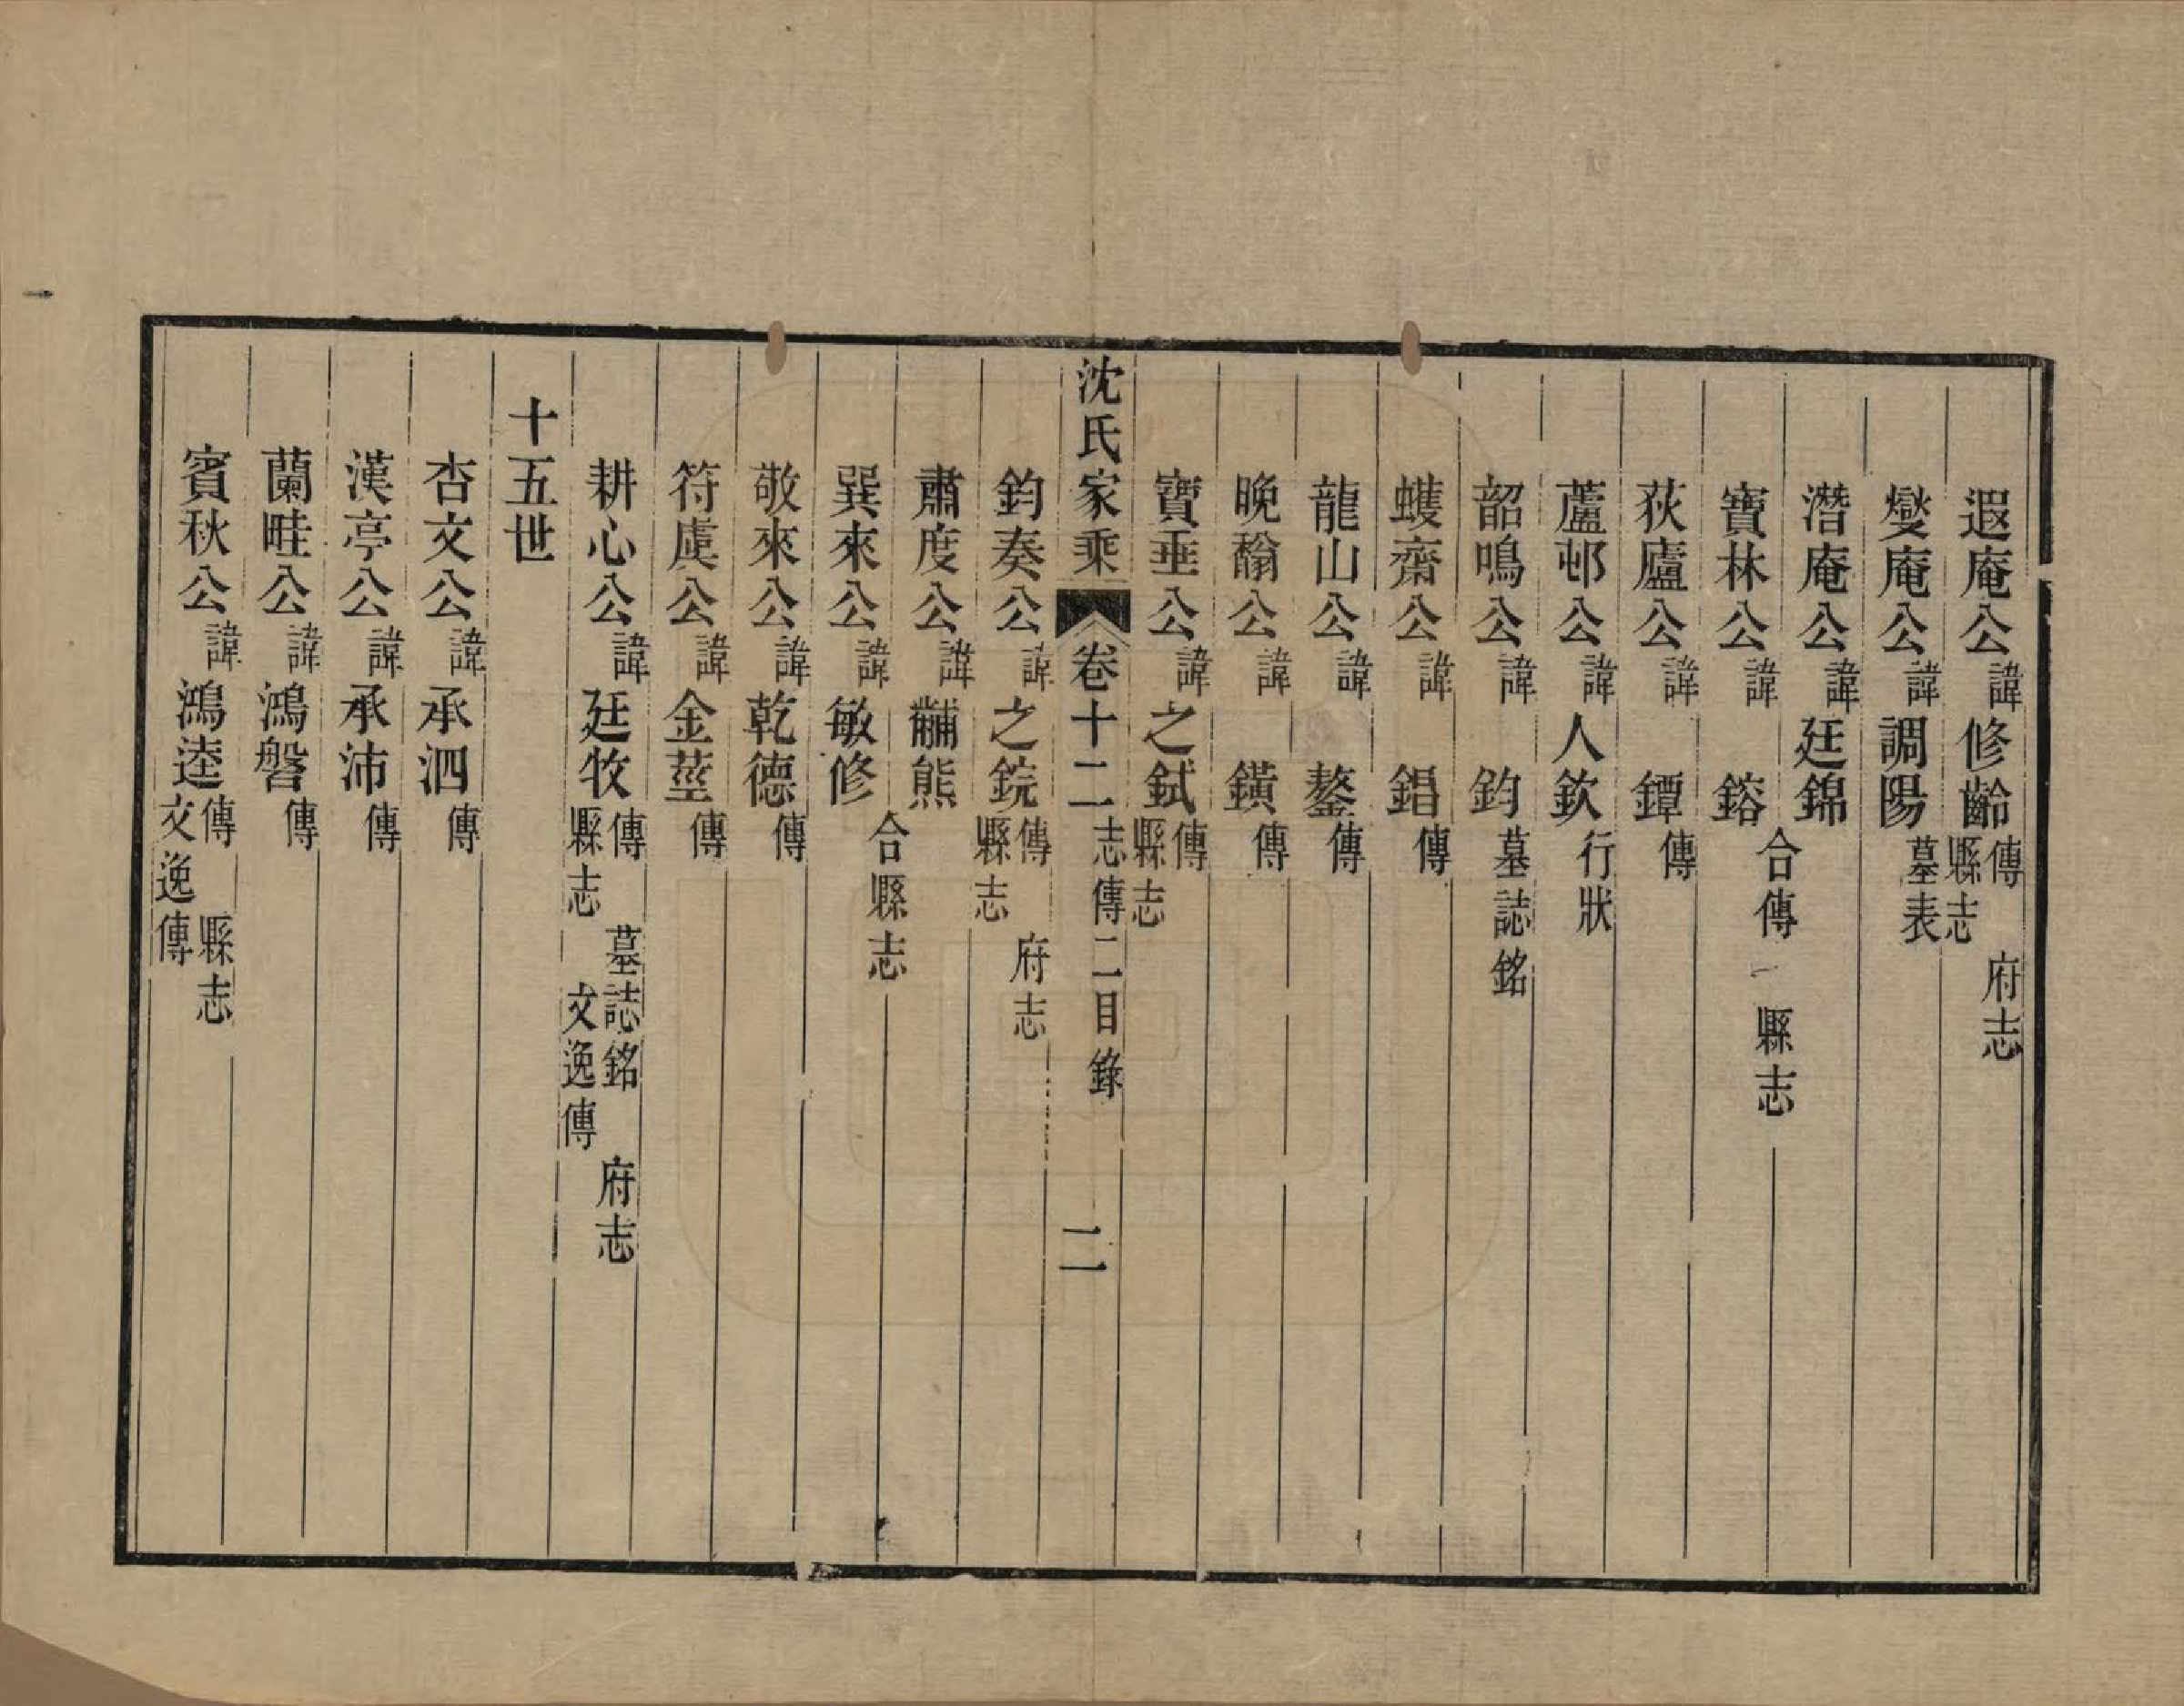 遐庵公諱修齡傳 府志 縣志
燮庵公諱調陽墓表
潛庵公諱廷錦
寶林公諱鎔合傳 縣志
荻廬公諱鐔傳
蘆邨公諱人欽行狀
韶鳴公諱鈞墓誌銘
蠖齋公諱錩傳
龍山公諱鏊傳
晚翰公諱鐄傳
寶垂公諱之鉽傳 縣志
沈氏家乘 卷十二 志傳二目錄 二
鈞奏公諱之鋎傳 府志 縣志
肅度公諱黼熊
巽來公諱敏修合縣志
敬來公諱乾德傳
符虞公諱金莖傳
耕心公諱廷牧傳 墓誌銘 府志 縣志 文逸傳
十五世
杏文公諱承泗傳
漢亭公諱承沛傳
蘭畦公諱鴻磐傳
賓秋公諱鴻逵傳 縣志 文逸傳